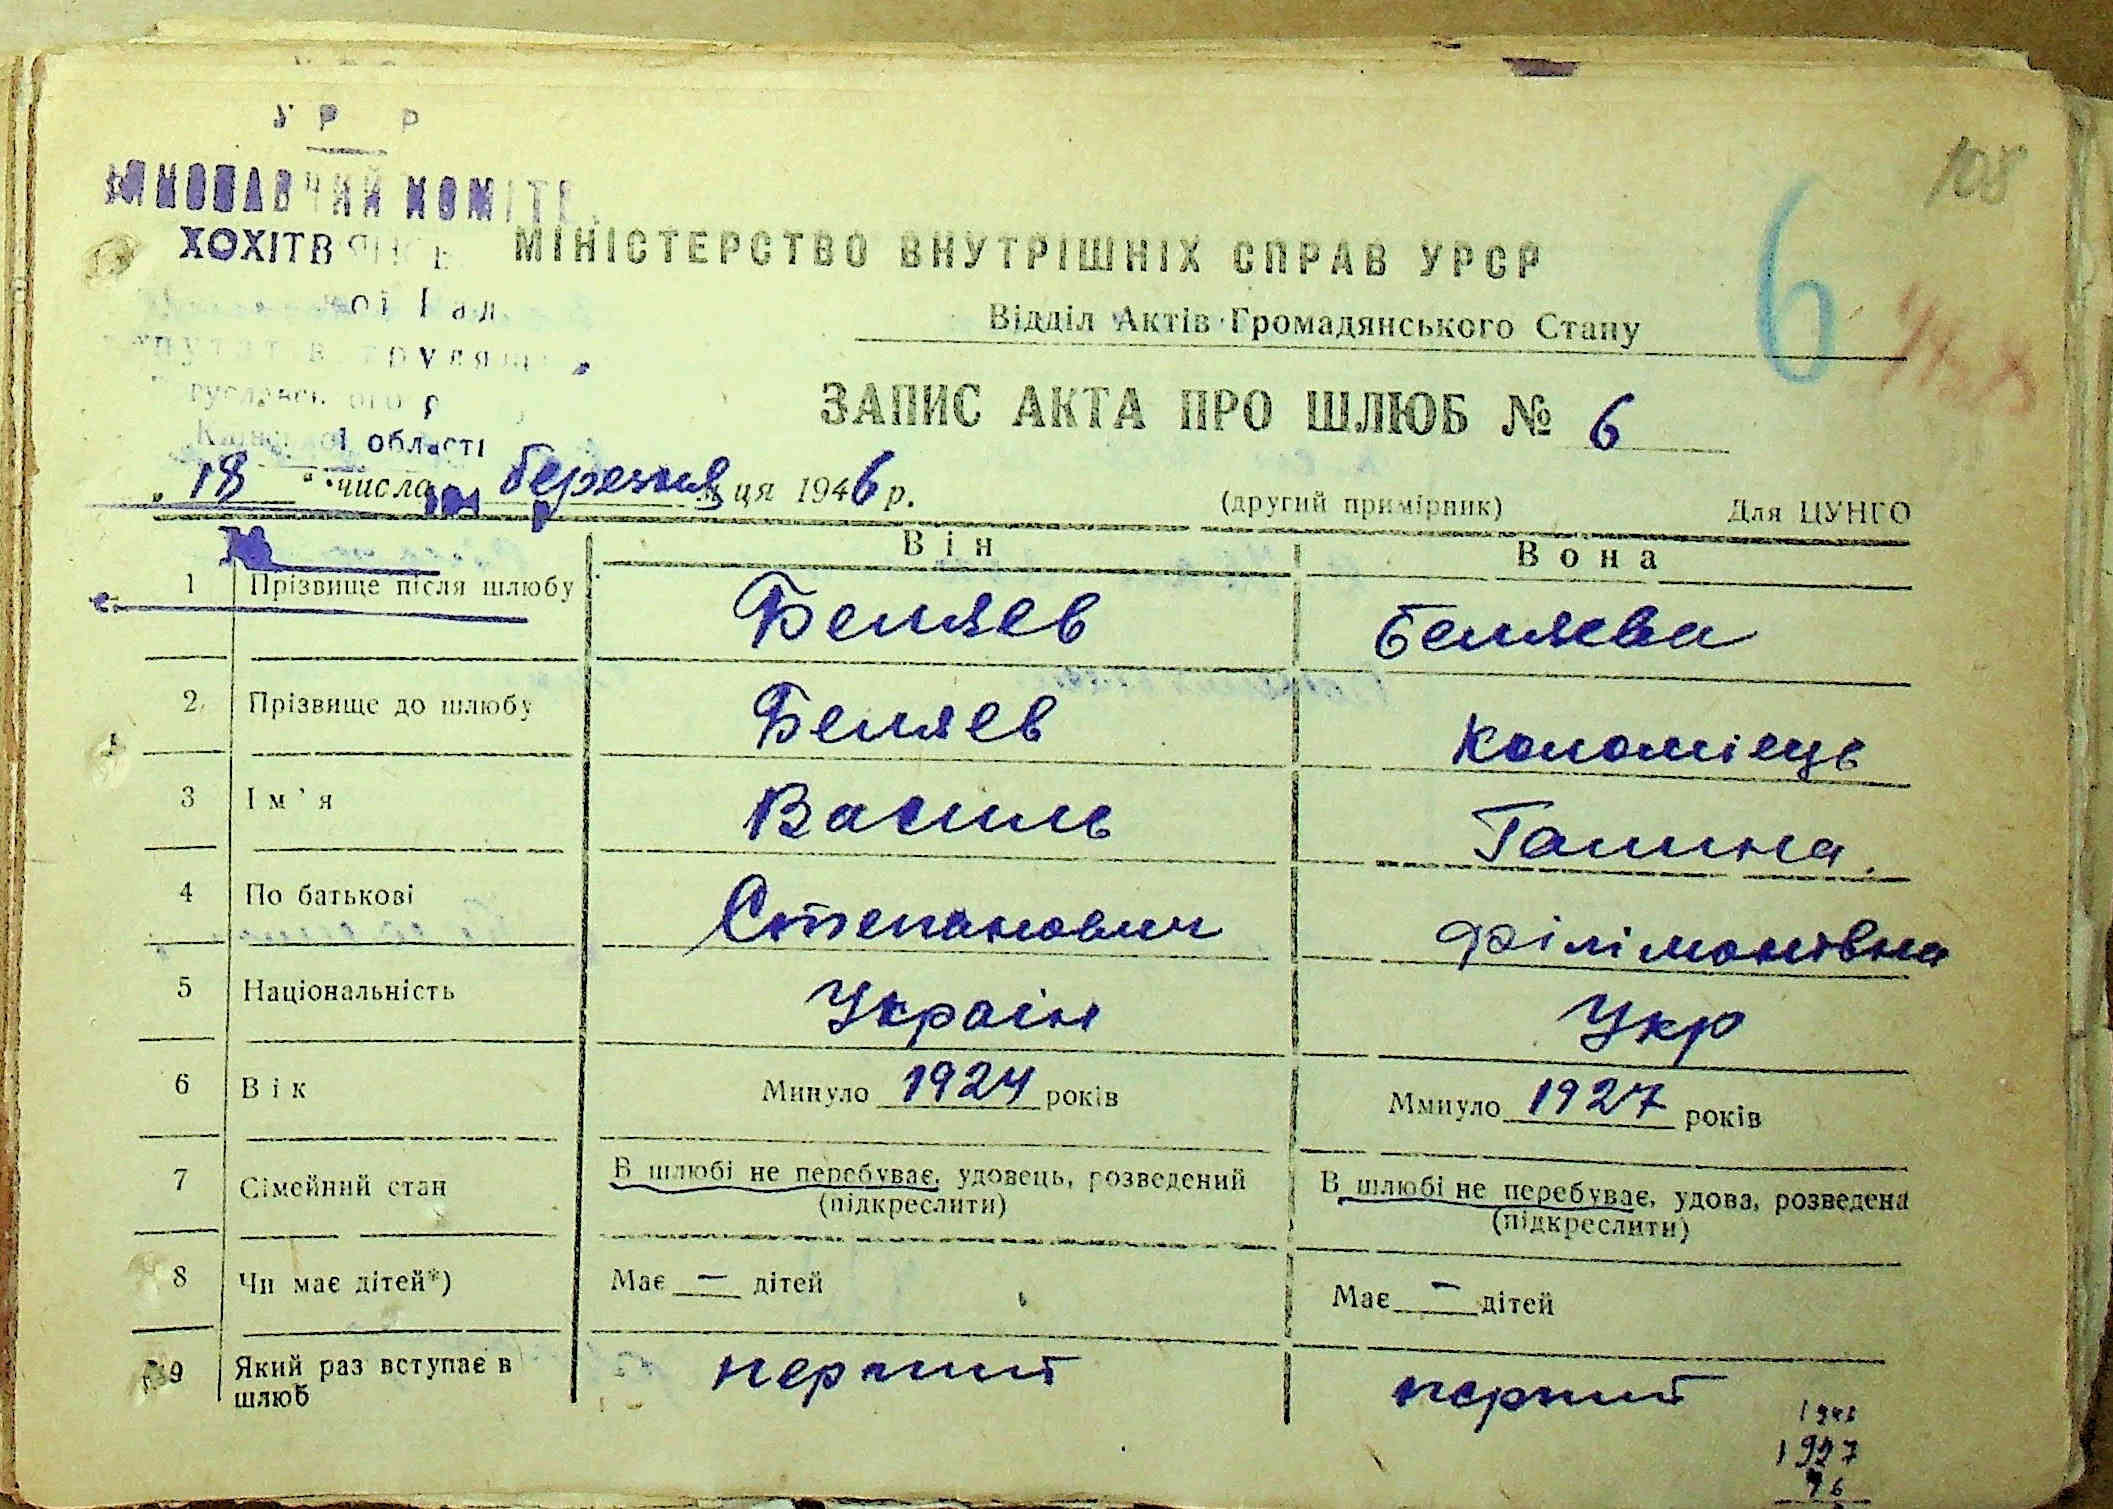 108
ХОХІТВ
МІНІСТЕРСТВО ВНУТРІШНІХ СПРАВ УРСР
6
Відділ Актів Громадянського Стану
ЗАПИС АКТА ПРО ШЛЮБ № 6
області
„ 18 " числа березня ця 1946 р.
(другий примірник) Для ЦУНГО
Він Вона
1 Прізвище після шлюбу Беляев Беляева
2 Прізвище до шлюбу Беляев Коломієць
3 Ім'я Василь Галина
4 По батькові Степанович Філімонівна
5 Національність Украін Укр
6 Вік Минуло 1924 років Ммнуло 1927 років
7 Сімейний стан В шлюбі не перебуває, удовець, розведений (підкреслити) В шлюбі не перебуває, удова, розведена (підкреслити)
8 Чи має дітей*) Має — дітей Має — дітей
9 Який раз вступає в шлюб перший перший
1927